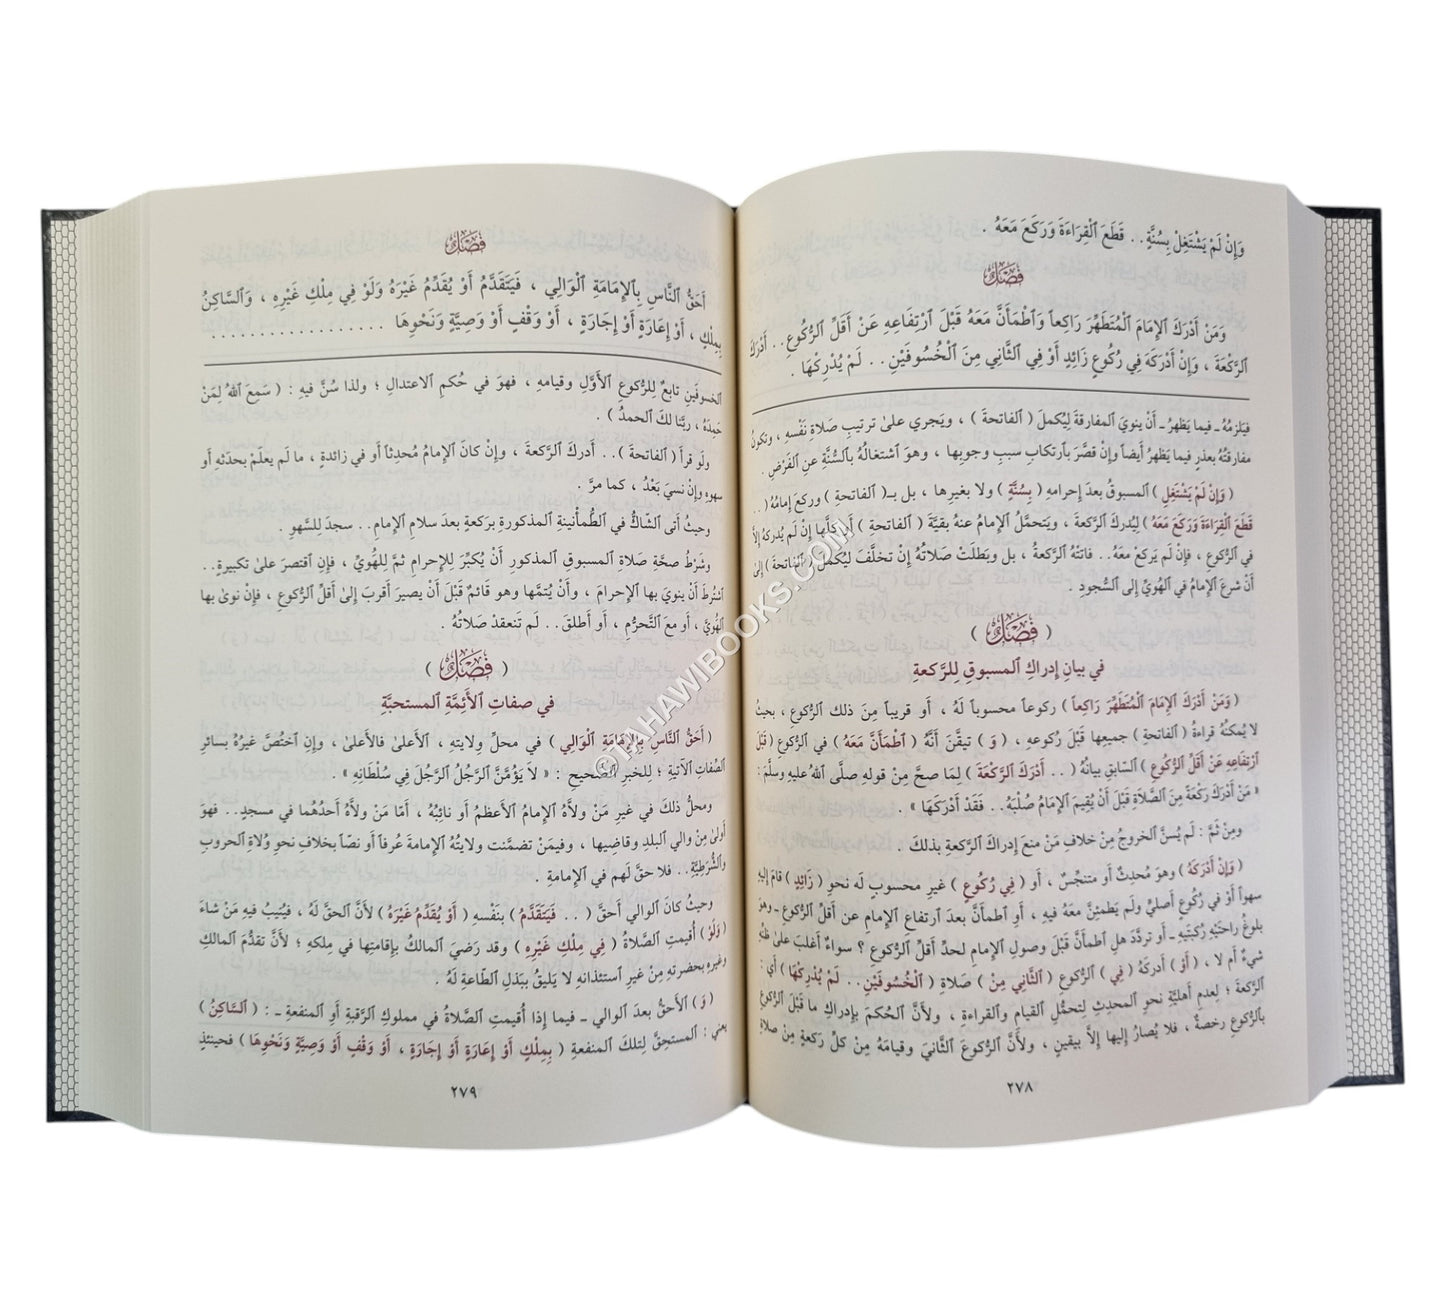 وَإِنْ لَمْ يَشْتَغِلْ بِسُنَّةٍ.. قَطَعَ ٱلْقِرَاءَةَ وَرَكَعَ مَعَهُ .
فَصْلٌ
وَمَنْ أَدْرَكَ ٱلإِمَامَ ٱلْمُتَطَهِّرَ رَاكِعاً وَٱطْمَأَنَّ مَعَهُ قَبْلَ ٱرْتِفَاعِهِ عَنْ أَقَلِّ ٱلرُّكُوعِ.. أَدْرَكَ
ٱلرَّكْعَةَ ، وَإِنْ أَدْرَكَهُ فِي رُكُوعٍ زَائِدٍ أَوْ فِي ٱلثَّانِي مِنَ ٱلْخُسُوفَيْنِ.. لَمْ يُدْرِكْهَا .
فيلزمُهُ ـ فيما يَظهرُ ـ أَنْ ينويَ المفارقةَ ليُكملَ ( ٱلفاتحةَ ) ، ويَجري علىٰ ترتيبِ صلاةِ نَفْسِهِ ، وتكونُ
مفارقتُهُ بعذرٍ فيما يَظهرُ أَيضاً وإنْ قصَّرَ بٱرتكابِ سببِ وجوبِها ، وهوَ ٱشتغالُهُ بٱلسُّنَّةِ عنِ ٱلفَرْضِ .
( وَإِنْ لَمْ يَشْتَغِلْ ) ٱلمسبوقُ بعدَ إِحرامِهِ ( بِسُنَّةٍ ) ولا بغيرِها ، بل بـ( ٱلفاتحةِ ) وركعَ إِمامُهُ ( ..
قَطَعَ ٱلْقِرَاءَةَ وَرَكَعَ مَعَهُ ) ليُدركَ ٱلرَّكعةَ ، ويَتحمَّلُ ٱلإِمامُ عنهُ بقيَّةَ ( ٱلفاتحةِ ) أو كلَّها إِنْ لَم يُدركهُ إِلَّا
في ٱلرُّكوعِ ، فإِنْ لَم يَركعْ معَهُ.. فاتتْهُ ٱلرَّكعةُ ، بل وبَطلَتْ صلاتُهُ إِنْ تخلَّفَ ليُكملَ ( ٱلفاتحةَ ) إِلىٰ
أَنْ شرعَ ٱلإِمامُ في ٱلهُوِيِّ إِلى ٱلسُّجودِ .
( فَصْلٌ )
في بيانِ إِدراكِ ٱلمسبوقِ لِلرَّكعةِ
( وَمَنْ أَدْرَكَ ٱلإِمَامَ ٱلْمُتَطَهِّرَ رَاكِعاً ) ركوعاً محسوباً لَهُ ، أَو قريباً مِنَ ذلك ٱلرُّكوعِ ، بحيثُ
لا يُمكنُهُ قراءةُ ( ٱلفاتحةِ ) جميعِها قَبْلَ ركوعِهِ ، ( وَ ) تيقَّنَ أَنَّهُ ( ٱطْمَأَنَّ مَعَهُ ) في ٱلرُّكوعِ ( قَبْلَ
ٱرْتِفَاعِهِ عَنْ أَقَلِّ ٱلرُّكُوعِ ) ٱلسَّابقِ بيانُهُ ( .. أَدْرَكَ ٱلرَّكْعَةَ ) لِمَا صحَّ مِنْ قولِهِ صلَّى ٱللهُ عليهِ وسلَّمَ :
« مَنْ أَدْرَكَ رَكْعَةً مِنَ ٱلصَّلاَةِ قَبْلَ أَنْ يُقِيمَ ٱلإِمَامُ صُلْبَهُ.. فَقَدْ أَدْرَكَهَا » .
ومِنْ ثَمَّ : لَم يُسنَّ ٱلخروجُ مِنْ خلافِ مَنْ منعَ إِدراكَ ٱلرَّكعةِ بذلكَ .
( وَإِنْ أَدْرَكَهُ ) وهوَ مُحدِثٌ أَو متنجِّسٌ ، أَو ( فِي رُكُوعٍ ) غيرِ محسوبٍ لَه نحوِ ( زَائِدٍ ) قامَ إِليهِ
سهواً أَوْ في رُكوعٍ أَصليٍّ ولَم يَطمئِنَّ معَهُ فيهِ ، أَوِ ٱطمأَنَّ بعدَ ٱرتفاعِ ٱلإِمامِ عن أَقلِّ ٱلرُّكوعِ ـ وهوَ
بلوغُ راحتَيهِ رُكبتَيهِ ـ أَو تردَّدَ هلِ ٱطمأَنَّ قَبْلَ وصولِ ٱلإِمامِ لحدِّ أَقلِّ ٱلرُّكوعِ ؟ سواءٌ أَغلبَ علىٰ ظنِّهِ
شيءٌ أم لا ، ( أَوْ ) أَدركَهُ ( فِي ) ٱلرُّكوعِ ( ٱلثَّانِي مِنْ ) صَلاةِ ( ٱلْخُسُوفَيْنِ.. لَمْ يُدْرِكْهَا ) أَي :
ٱلرَّكعةَ ؛ لِعدمِ أَهليَّةِ نحوِ ٱلمحدثِ لِتحمُّلِ ٱلقيامِ وٱلقراءةِ ، ولأَنَّ ٱلحُكمَ بإِدراكِ ما قَبْلَ ٱلرُّكوعِ
بٱلرُّكوعِ رخصةٌ ، فلا يُصارُ إِليها إِلَّا بيقينٍ ، ولأَنَّ ٱلرُّكوعَ ٱلثَّانيَ وقيامَهُ مِنْ كلِّ ركعةٍ مِنْ صلاةِ
٢٧٨
فَصْلٌ
أَحَقُّ ٱلنَّاسِ بِٱلإِمَامَةِ ٱلْوَالِي ، فَيَتَقَدَّمُ أَوْ يُقَدِّمُ غَيْرَهُ وَلَوْ فِي مِلْكِ غَيْرِهِ ، وَٱلسَّاكِنُ
بِمِلْكٍ ، أَوْ إِعَارَةٍ أَوْ إِجَارَةٍ ، أَوْ وَقْفٍ أَوْ وَصِيَّةٍ وَنَحْوِهَا . . . . . . . . . . . . . .
ٱلخسوفَينِ تابعٌ لِلرُّكوعِ ٱلأَوَّلِ وقيامِهِ ، فهوَ في حُكمِ ٱلاعتدالِ ؛ ولذا سُنَّ فيهِ : ( سَمِعَ ٱللهُ لِمَنْ
حَمِدَهُ ، ربَّنا لكَ ٱلحمدُ ) .
ولَو قرأَ ( ٱلفاتحةَ ).. أَدركَ ٱلرَّكعةَ ، وإِنْ كانَ ٱلإِمامُ مُحدِثاً أَو في زائدةٍ ، ما لَم يعلَمْ بحدثِهِ أَو
سهوِهِ وإِنْ نسيَ بَعْدُ ، كما مرَّ .
وحيثُ أَتى ٱلشَّاكُّ في ٱلطُّمأْنينةِ ٱلمذكورةِ برَكعةٍ بعدَ سلامِ ٱلإِمامِ.. سجدَ لِلسَّهوِ .
وشَرْطُ صحَّةِ صلاةِ ٱلمسبوقِ ٱلمذكورِ أَنْ يُكبِّرَ لِلإِحرامِ ثمَّ لِلهُوِيِّ ، فإِنِ ٱقتصرَ علىٰ تكبيرةٍ..
ٱشترطَ أَنْ ينويَ بها ٱلإِحرامَ ، وأَنْ يُتمَّها وهو قائمٌ قَبْلَ أَنْ يصيرَ أَقربَ إِلىٰ أَقلِّ ٱلرُّكوعِ ، فإِنْ نوىٰ بها
ٱلهُوِيَّ ، أَو معَ ٱلتَّحرُّمِ ، أَو أَطلقَ.. لَم تَنعقدْ صَلاتُهُ .
( فَصْلٌ )
في صفاتِ ٱلأَئِمَّةِ ٱلمستحبَّةِ
( أَحَقُّ ٱلنَّاسِ بِٱلإِمَامَةِ ٱلْوَالِي ) في محلِّ ولايتِهِ ، ٱلأَعلىٰ فٱلأَعلىٰ ، وإِنِ ٱختُصَّ غيرُهُ بسائرِ
ٱلصِّفاتِ ٱلآتيةِ ؛ لِلخبرِ ٱلصَّحيحِ : « لاَ يَؤُمَّنَّ ٱلرَّجُلُ ٱلرَّجُلَ فِي سُلْطَانِهِ » .
ومحلُّ ذلكَ في غيرِ مَنْ ولاَّهُ ٱلإِمامُ ٱلأَعظمُ أَو نائِبُهُ ، أَمَّا مَنْ ولاَّهُ أَحدُهُما في مسجدٍ.. فهوَ
أَولىٰ مِن والي ٱلبلدِ وقاضِيها ، وفيمَنْ تضمَّنت ولايتُهُ ٱلإِمامةَ عُرفاً أَو نصّاً بخلافِ نحوِ وُلاةِ ٱلحروبِ
وٱلشُّرَطِيَّةِ.. فلا حقَّ لَهم في ٱلإِمامةِ .
وحيثُ كانَ ٱلوالي أَحقَّ ( .. فَيَتَقَدَّمُ ) بنَفْسِهِ ( أَوْ يُقَدِّمُ غَيْرَهُ ) لأَنَّ ٱلحقَّ لَهُ ، فيُنِيبُ فيهِ مَنْ شاءَ
( وَلَوْ ) أُقيمتِ ٱلصَّلاةُ ( فِي مِلْكِ غَيْرِهِ ) وقد رَضيَ ٱلمالكُ بإِقامتِها في مِلكِهِ ؛ لأَنَّ تقدُّمَ ٱلمالكِ
وغيرِهِ بحضرتِهِ مِنْ غيرِ ٱستئذانِهِ لا يَليقُ ببَذلِ ٱلطَّاعةِ لَهُ .
( وَ ) ٱلأَحقُّ بعدَ ٱلوالي ـ فيما إِذا أُقيمتِ ٱلصَّلاةُ في مملوكِ ٱلرَّقبةِ أَوِ ٱلمنفعةِ ـ : ( ٱلسَّاكِنُ )
يعني : ٱلمستحِقَّ لِتلكَ ٱلمنفعةِ ( بِمِلْكٍ أَوْ إِعَارَةٍ أَوْ إِجَارَةٍ ، أَوْ وَقْفٍ أَوْ وَصِيَّةٍ وَنَحْوِهَا ) فحينئذٍ
٢٧٩
©TAHAWIBOOKS.COM